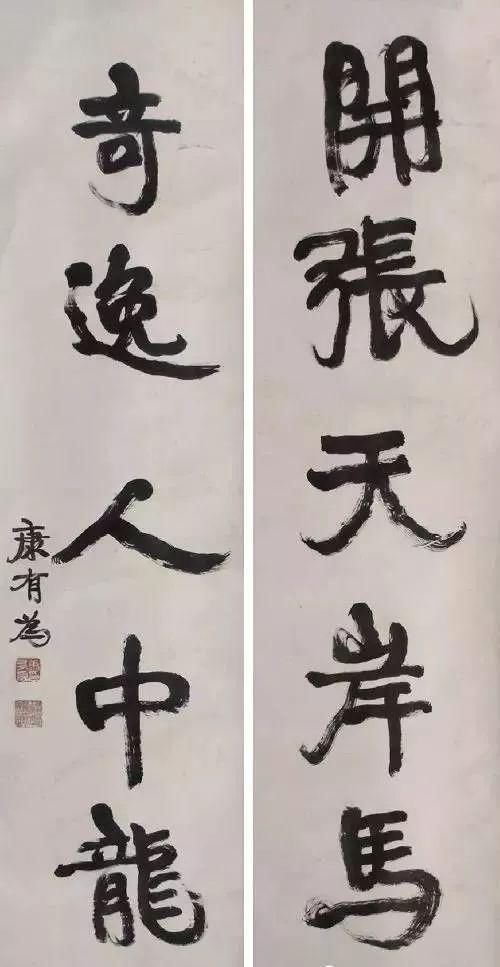 開張天岸馬
奇逸人中龍
康有為